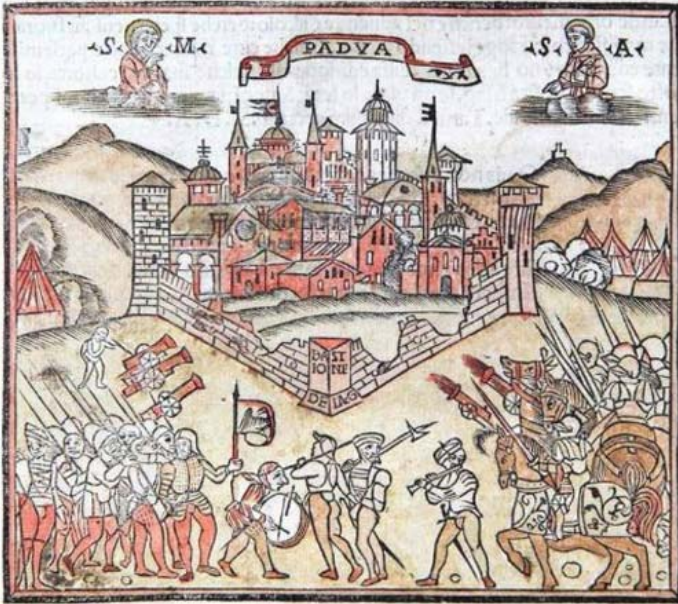 S M
PADVA
S A
BAST
IONE
DE LA G